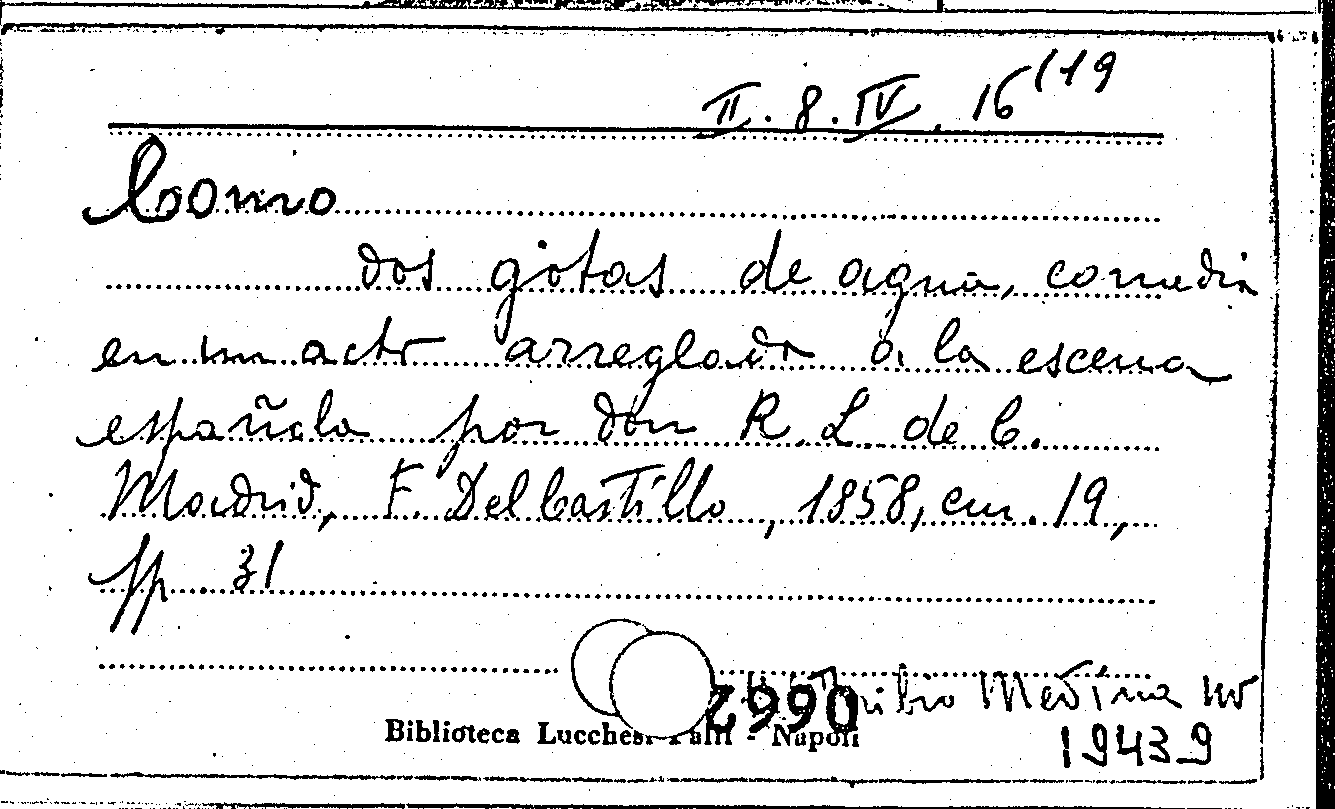 II. 8. IV. 16(19
Como
dos gotas de agua, comedia
en un acto arreglado a la escena
española por don R. L. de C.
Madrid, F. Del Castillo, 1858, cm. 19,
pp. 31
Medina
0662
Biblioteca Lucchesi Palli - Napoli
19439